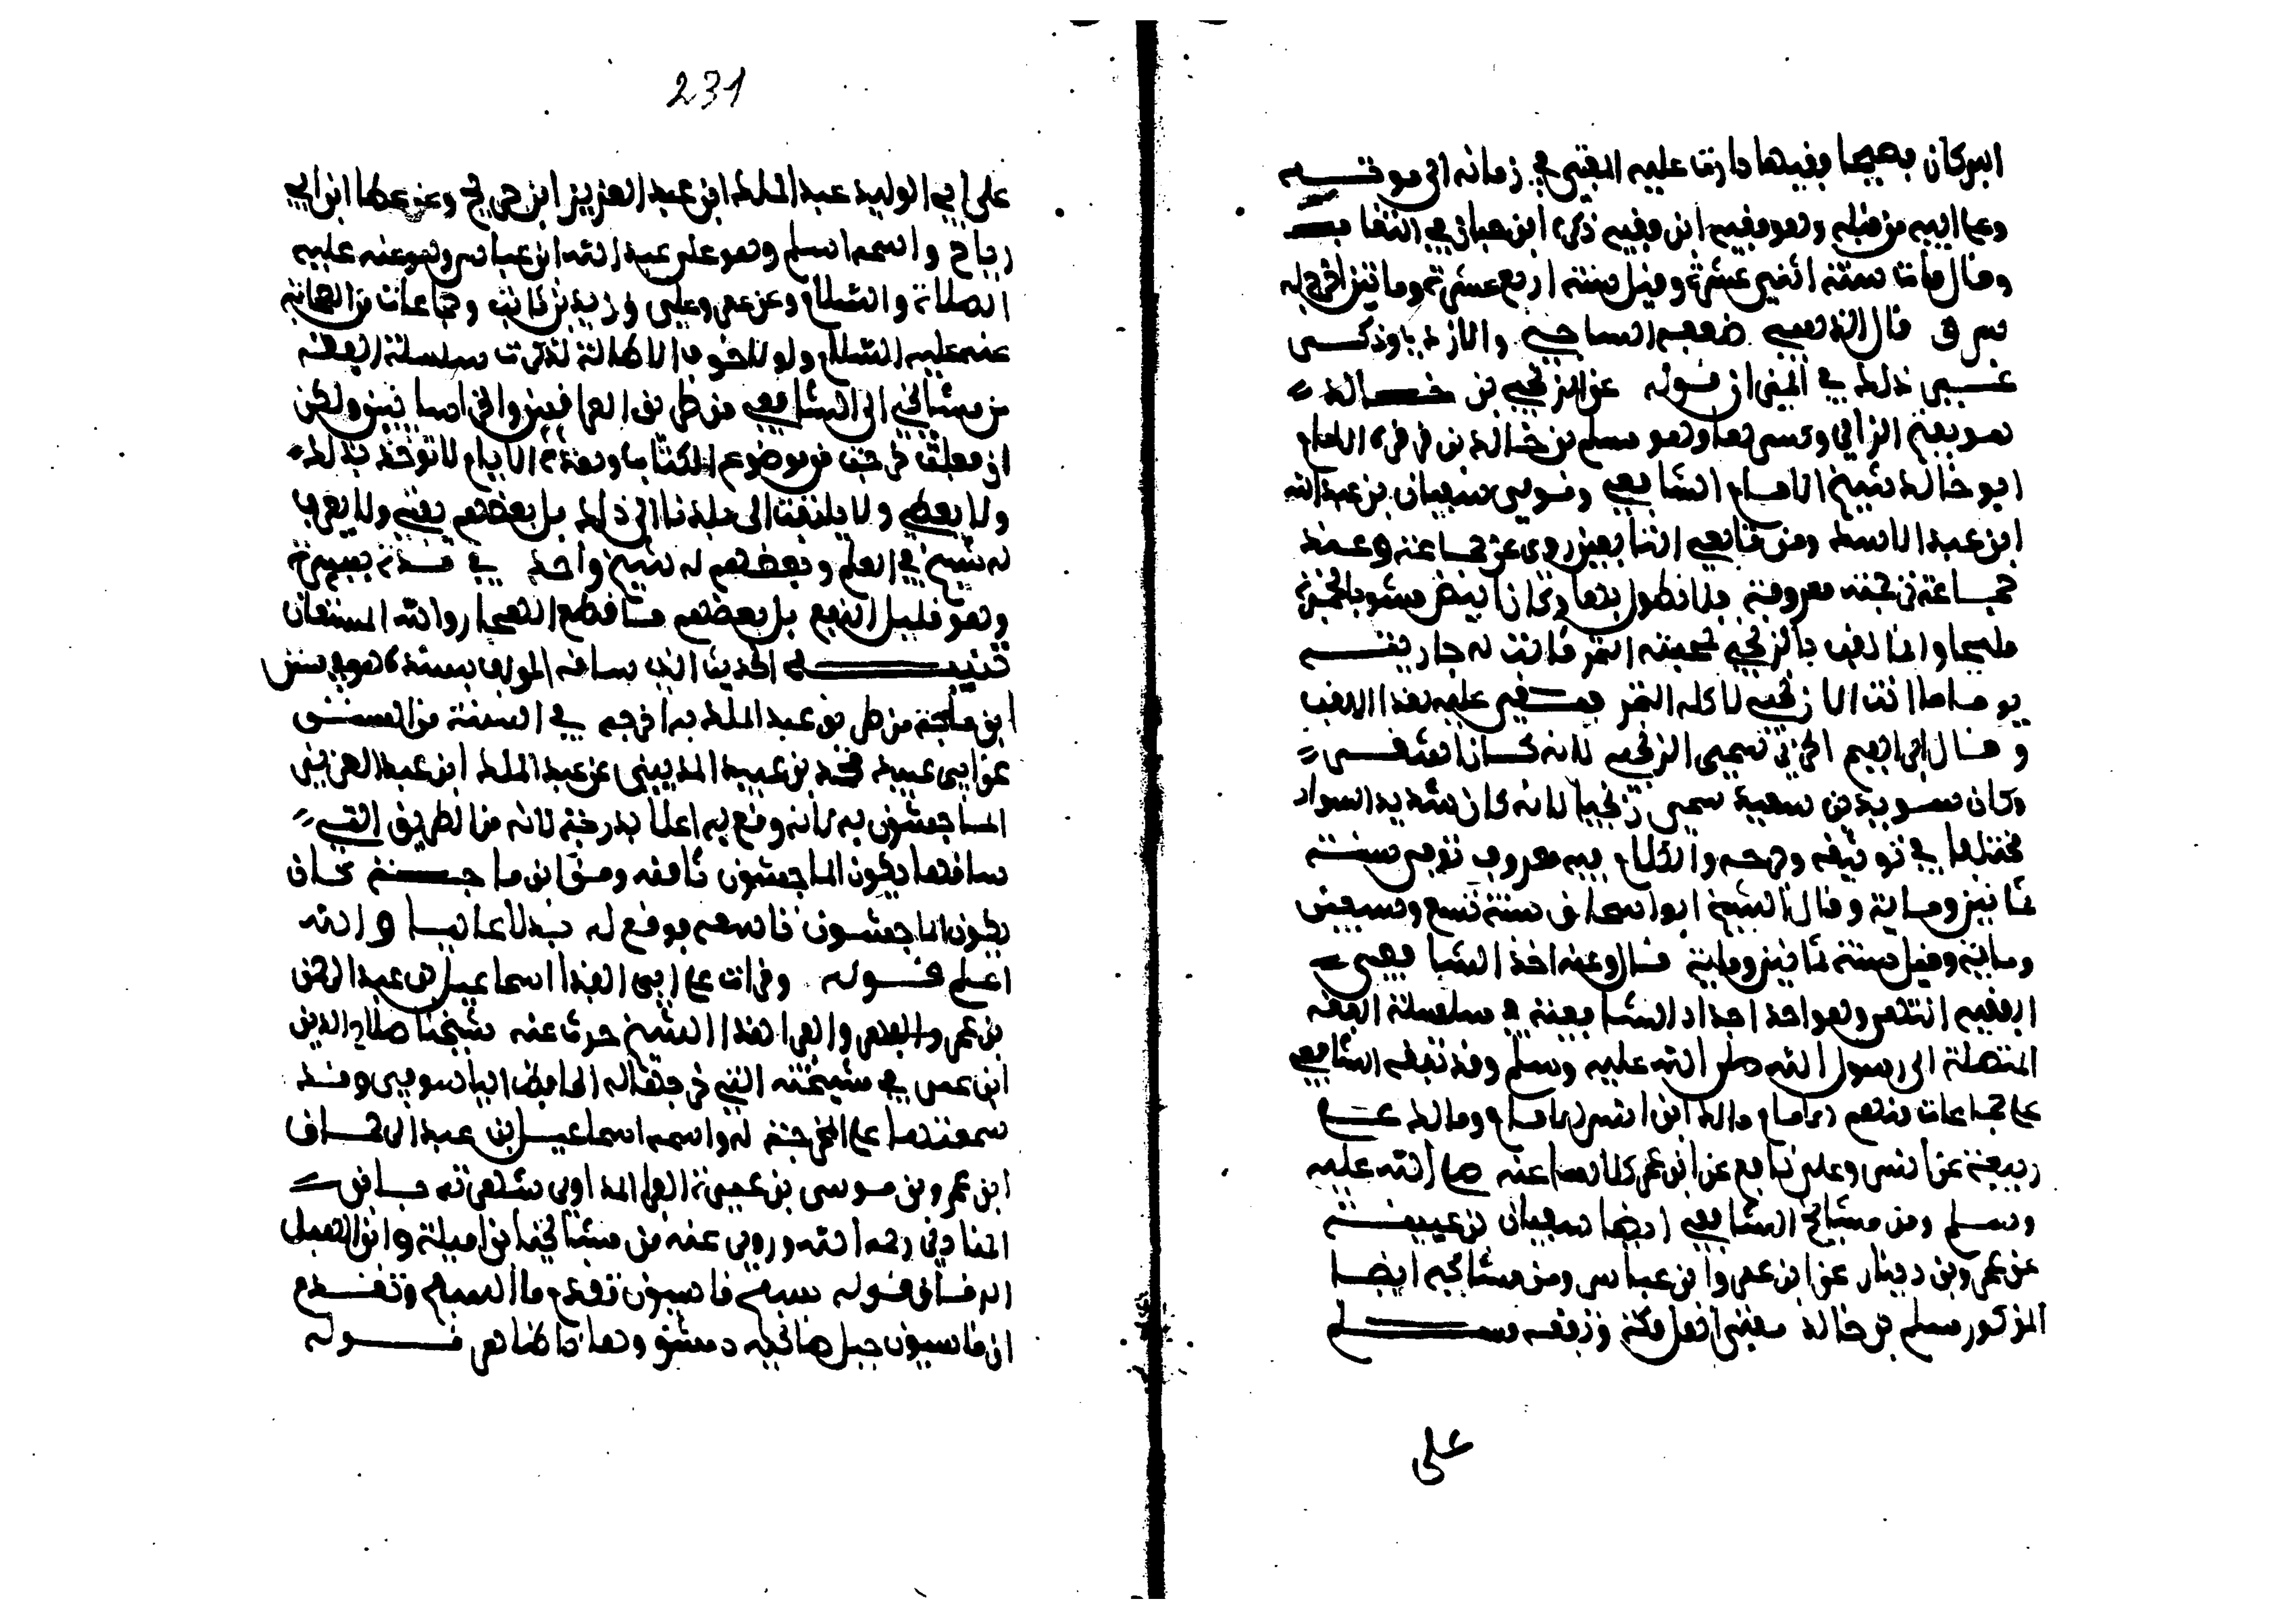 البركان فصيحا وفقيها دارت عليه الفتيى في زمانه الى موتـــــه
وعلى ابيه من قبله وهو فقيه ابن فقيه ذكره ابن حبان في الثقات
وقال مات سنة اثنى عشرة وقيل سنة اربع عشرة وماتين اخرج له
س ق قال الذهبي ضعفه الساجي والازدي وذكـــر
غــيرى ذلك في قوله عن الزنجي بن خــــالد
هو بفتح الزاي وكسرها وهو مسلم بن خالد بن قرقرة الامام
ابو خالد شيخ الامام الشافعي ومولى سفيان بن عبد الله
ابن عبد الاسد ومن تابعي التابعين روى عن جماعة وعنه
جماعة ترجمته معروفة فلا نطول بها وكان ابيض مشوبا بحمرة
مليحا وانما لقب بالزنجي لمحبته التمر قالت له جاريتـــه
يوما ما انت الا زنجي لاكله التمر فبقـــي عليه هذا اللقب
وقــال ابراهيم الحربي سمي الزنجي لانه كــان اشقــر
وكان سويد بن سعيد سمي زنجيا لانه كان شديد السواد
مختلفا في توثيقه وجرحه والكلام فيه معروف توفى سنــة
ثمانين وماية وقال الشيخ ابو اسحاق سنة تسع وسبعين
وماية وقيل سنة ثمانين وماية قال وعنه اخذ الشافعي
الفقيه انتهى وهو احد اجداد الشافعية في سلسلة الفقه
المتصلة الى رسول الله صلى الله عليه وسلم وقد تفقه الشافعي
على جماعات منهم الامام مالك ابن انس الامام ومالك علــى
ربيعة عن انس وعلى نافع عن ابن عمر كلاهما عنه صلى الله عليه
وسلم ومن مشايخ الشافعي ايضا سفيان بن عيينــة
عن عمرو بن دينار عن ابن عمر وابن عباس ومن مشايخه ايضــا
المذكور مسلم بن خالد مفتي اهل مكة وتفقه مســــلم
على
231
على ابي الوليد عبد الملك ابن عبد العزيز ابن جريج وعن عطا ابن ابي
رباح واسمه اسلم وهو على عبد الله ابن عباس وهو عنه عليه
الصلاة والسلام وعن عمر وعلي وزيد بن ثابت وجماعات من الصحابة
عنه عليه السلام ولولا خوف الاطالة لذكرت سلسلة الفقه
من مشايخي الى الشافعي من طريق العراقيين والخراسانيين ولكن
اني معلق خرجت من موضوع الكتاب وهذه الايام لا توخذ بذلك
ولا يعطي ولا يلتفت الى بلدنا الى ذلك بل بعضهم يفتي ولا يعرف
له شيخ في العلم وبعضهم له شيخ واحد في مــدة يسيرة
وهو قليل النفع بل بعضهم مــا قطع والله المستعان
تنبيــــــــه الحديث الذي ساقه المولف بسنده هو في سنن
ابن ماجة من طريق عبد الملك به اخرجه في السنة من السنــن
عن ابي عبيد محمد بن عبيد المديني عن عبد الملك ابن عبد العزيز
الماجشون به كانه وقع به اعلا بدرجة لانه من الطريق التي
ساقها يكون الماجشون ثامنه ومن ابن ماجـــة كــان
يكون الماجشون خامسهم فوقع له بــدلا عاليــا والله
اعلم قــــوله وقرات على ابي الفدا اسماعيل بن عبد الرحمن
بن عمرو والفراهذا الشيخ حدث عنه شيخنا صلاح الدين
ابن عمر في مشيخته التي خرجها له الحافظ الياسوفي وقــد
سمعتها على المخرجة له واسمه اسماعيــل بن عبد الرحمــان
ابن عمرو بن مــوسى بن عميرة الفرا المداوي شهرته
المنادي رحمه الله وروى عنه من مشايخنا بن اميلة وابن الهبل
الدقــاق قوله بسفح قاسيون تقدم ما السفح وتقــدم
ان قاسيون جبل صالحية دمشق وهذا ظاهر قــــوله